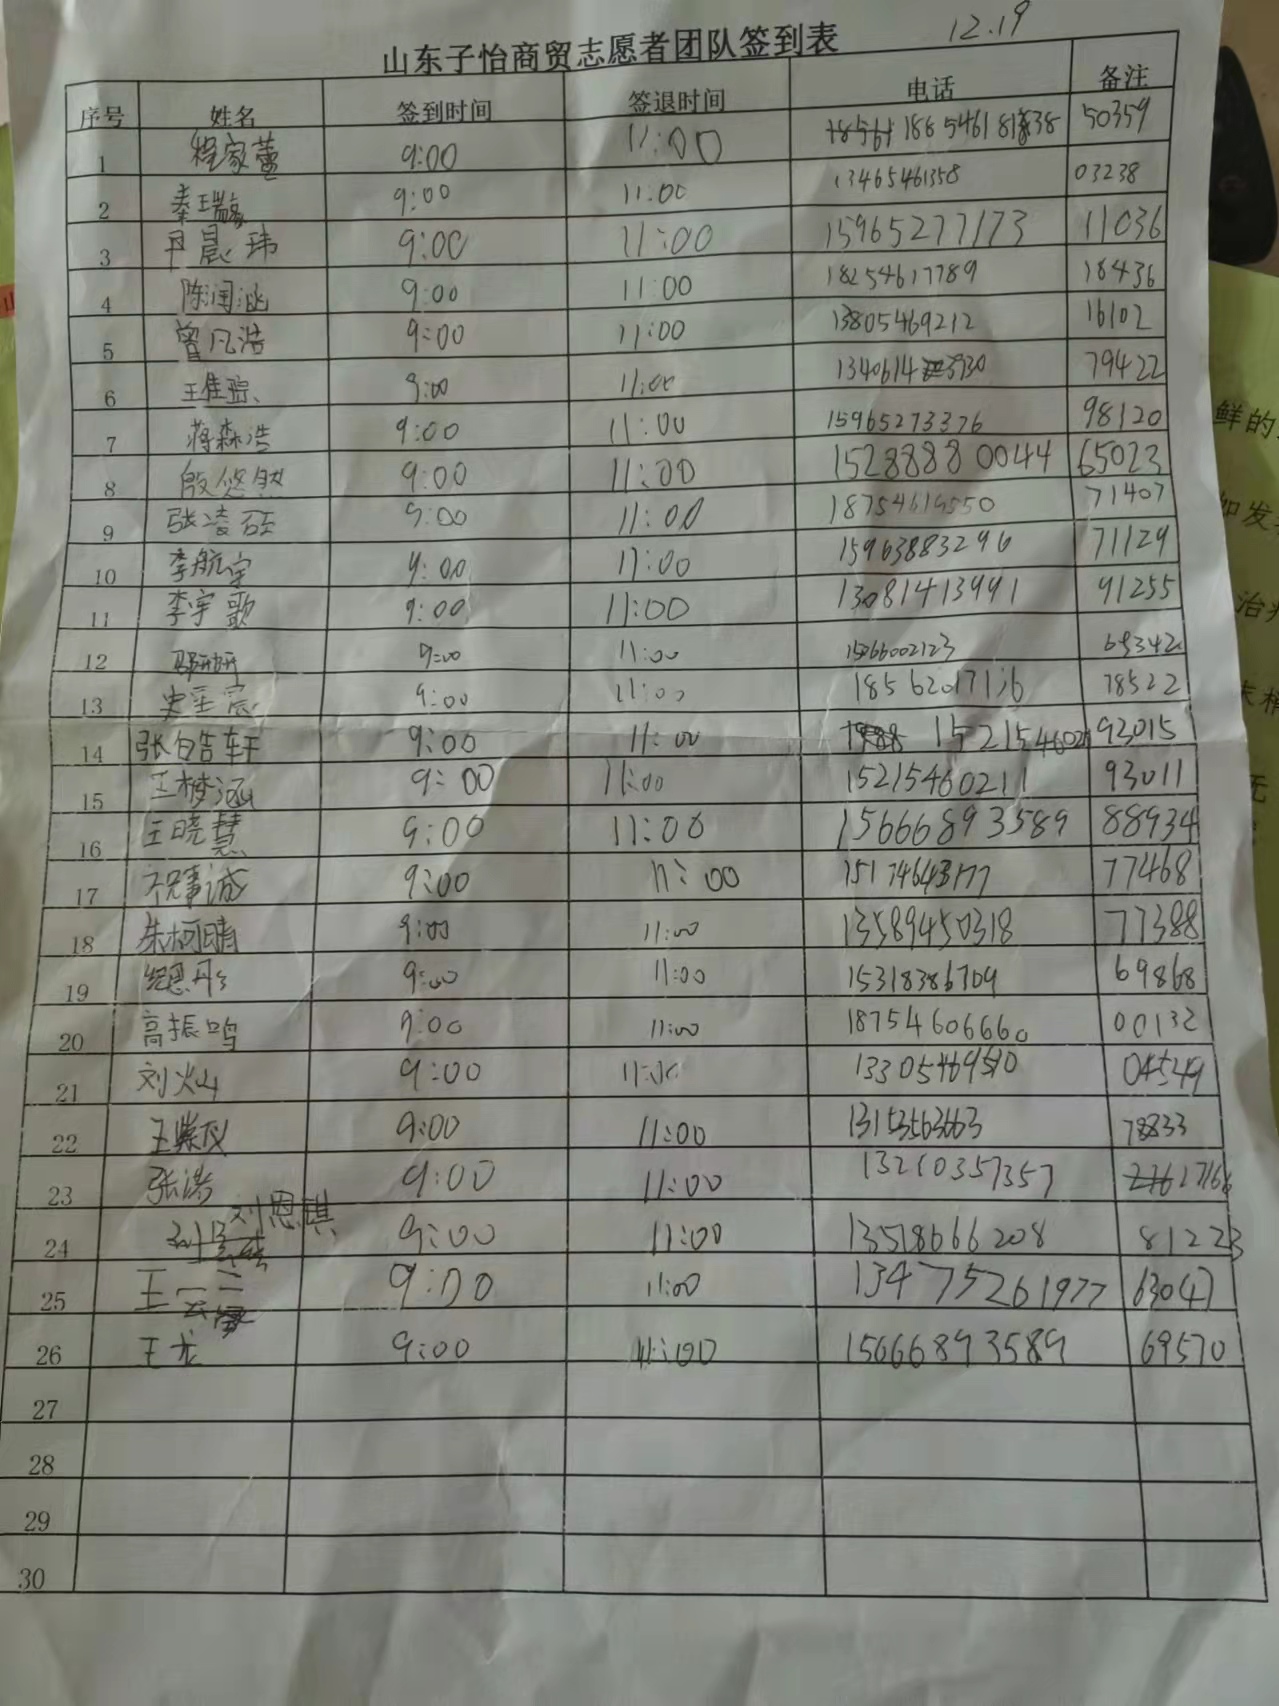 12.19
山东子怡商贸志愿者团队签到表
序号 姓名 签到时间 签退时间 电话 备注
1 程家蕾 9:00 11:00 18654618838 50359
2 秦瑞 9:00 11:00 13465461358 03238
3 晨玮 9:00 11:00 15965277173 11036
4 陈润涵 9:00 11:00 18254617789 18436
5 曾凡浩 9:00 11:00 13805469212 16102
6 王佳 9:00 11:00 79422
7 蒋森浩 9:00 11:00 15965273376 98120
8 殷悠然 9:00 11:00 15288880044 65023
9 张凌硕 9:00 11:00 71407
10 李航宇 9:00 11:00 15963883296 71129
11 李宇歌 9:00 11:00 13081413991 91255
12 9:00 11:00 15066002123
13 史 宸 9:00 11:00 78522
14 张皓轩 9:00 11:00 93015
15 王梦涵 9:00 11:00 15215460211 93011
16 王晓慧 9:00 11:00 15666893589 88934
17 祝 诚 9:00 11:00 77468
18 朱柯晴 9:00 11:00 13589450318 77388
19 纪恩彤 9:00 11:00 15318386709 69868
20 高振鸣 9:00 11:00 18754606660 00132
21 刘灿 9:00 11:00 04549
22 王紫仪 9:00 11:00 13153563663 78833
23 张浩 9:00 11:00 13210357357 17166
24 刘恩琪 9:00 11:00 13518666208 81223
25 王一 9:00 11:00 13475261977 63047
26 王龙 9:00 11:00 15666893589 69570
27
28
29
30
鲜的
如发
治
末梢
无